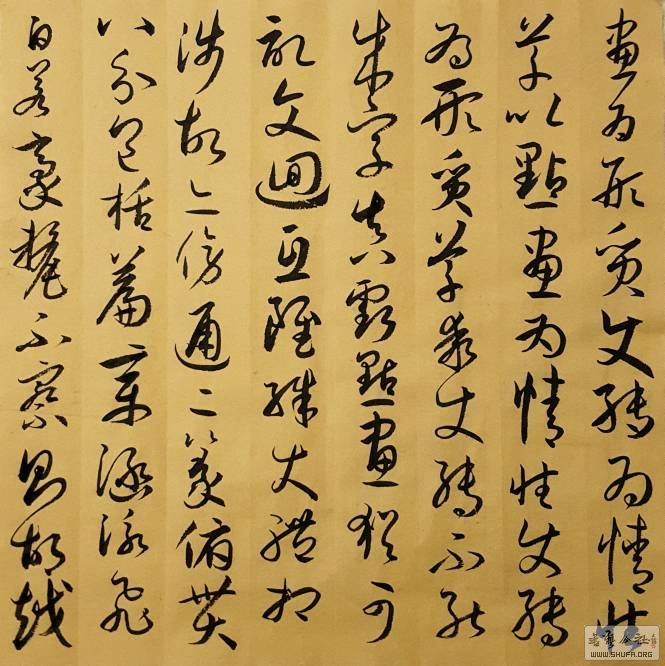 畫為形質使轉為情性
草以點畫為情性使轉
為形質草乖使轉不能
成字真虧點畫猶可
記文迴互雖殊大體相
涉故亦傍通二篆俯貫
八分包括篇章涵泳飛
白若豪氂不察則胡越
書藝公社
WWW.SHUFA.ORG